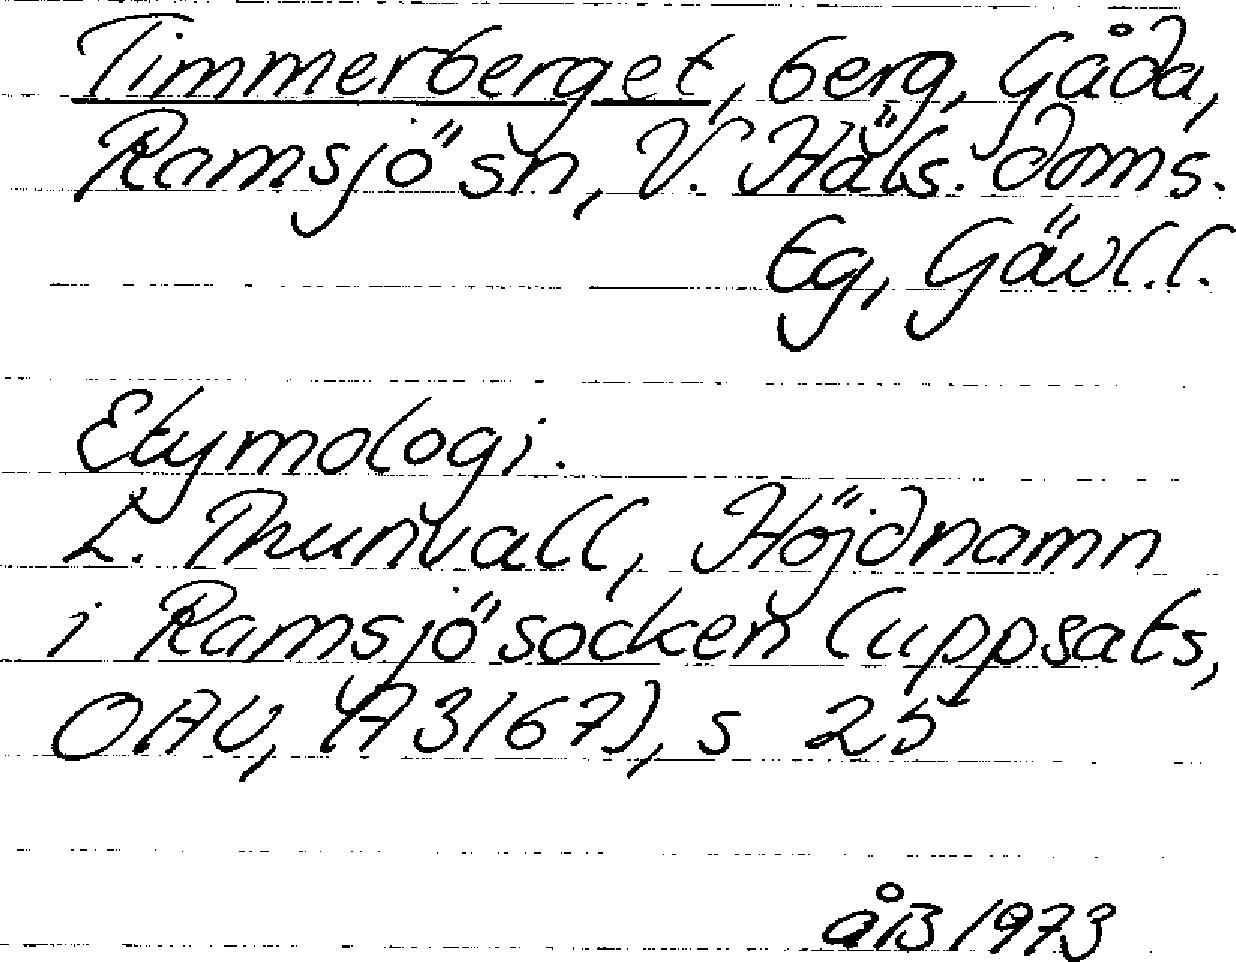 Timmerberget, berg, Gåda,
Ramsjö sn, V. Häls. doms.
Eg, Gävl.l.
Etymologi.
L. Thunvall, Höjdnamn
i Ramsjö socken (uppsats,
OAU, A 3167), s 25
åB 1973